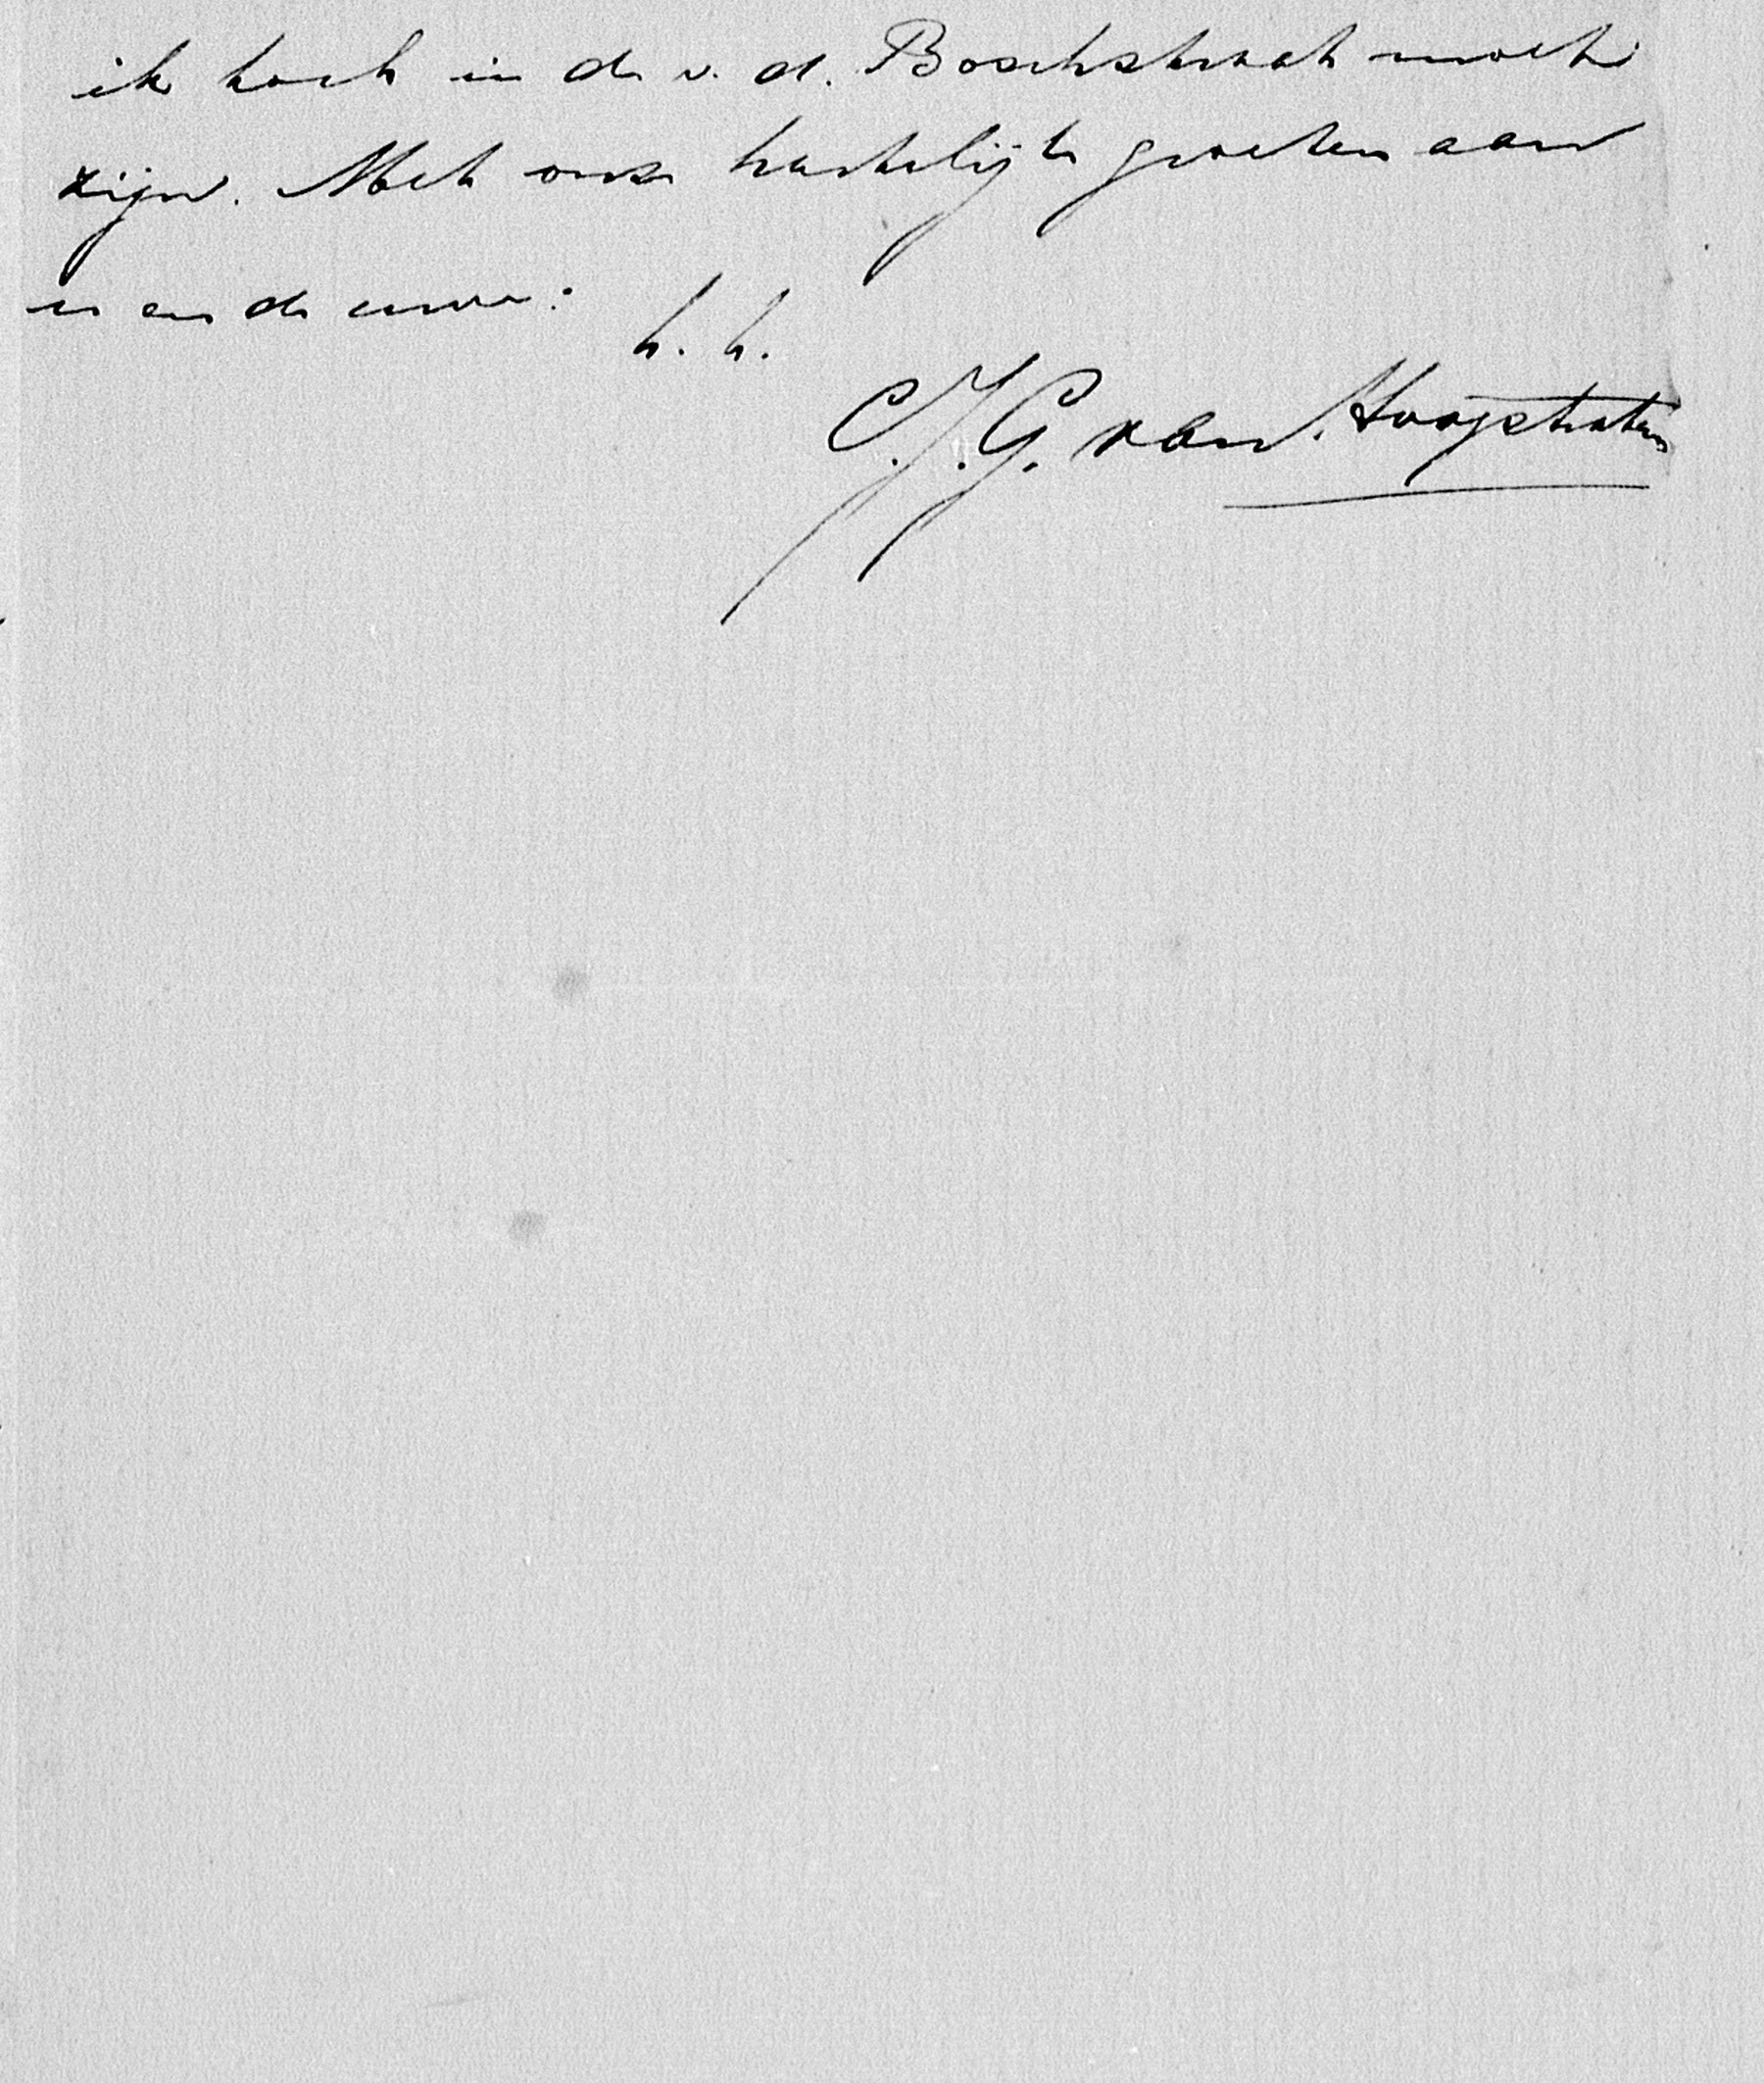 ik toch in de v. d. Boschstraat moet
zijn. Met onze hartelijke groeten aan
u en de uwe:
t. t.
C. J. G. van Hoogstraten